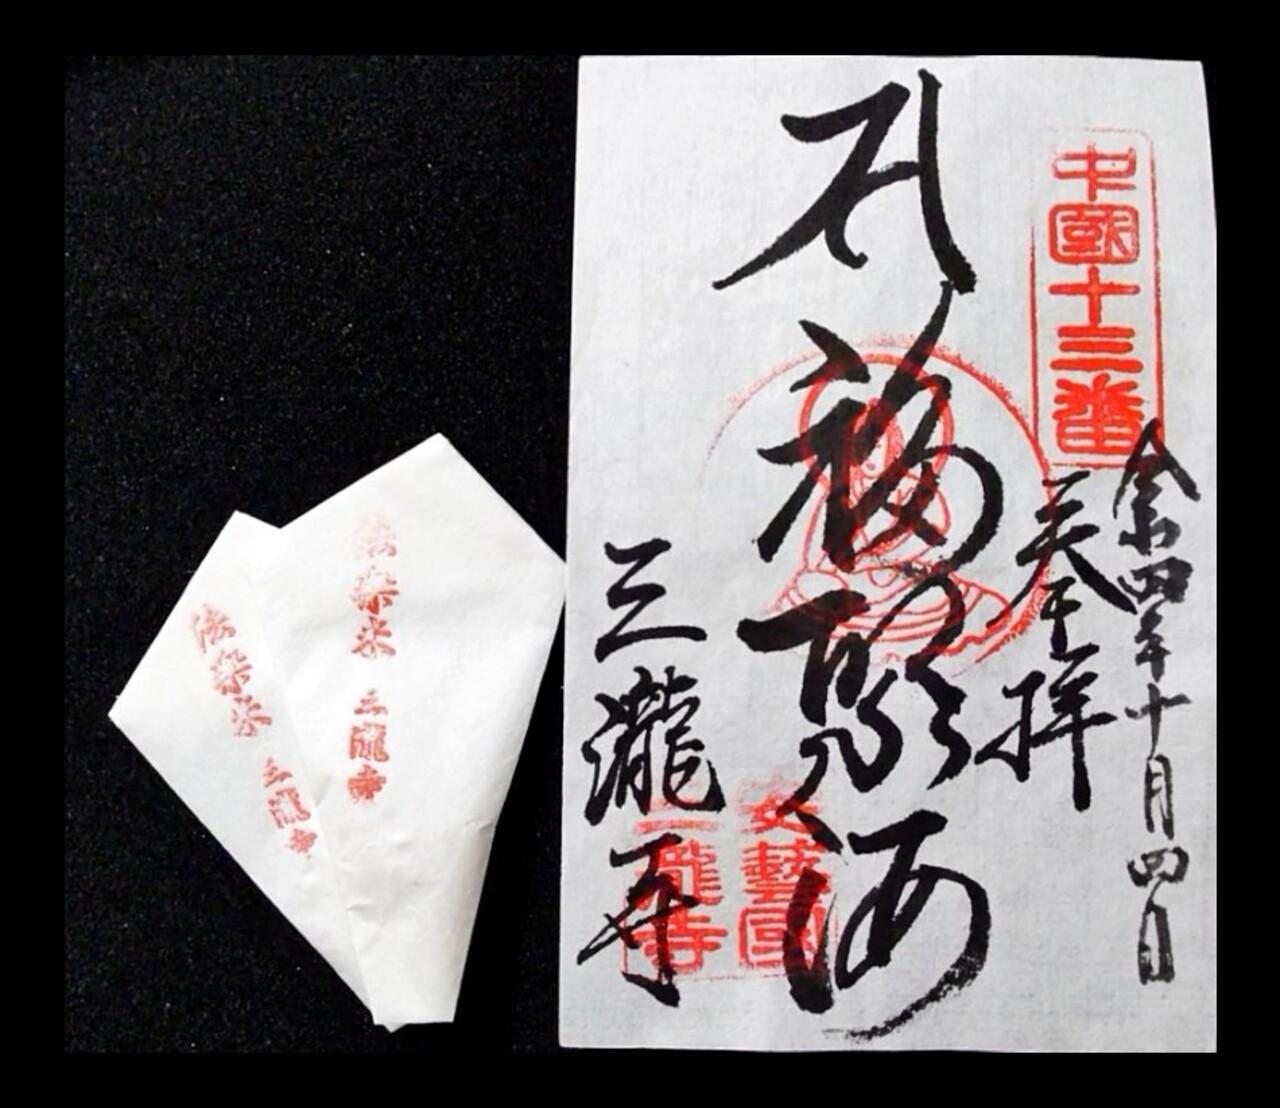 中國十三番
令和四年十月四日
奉拝
福聚海
三瀧寺
安藝國
三瀧寺
法楽米 三瀧寺
法楽米 三瀧寺